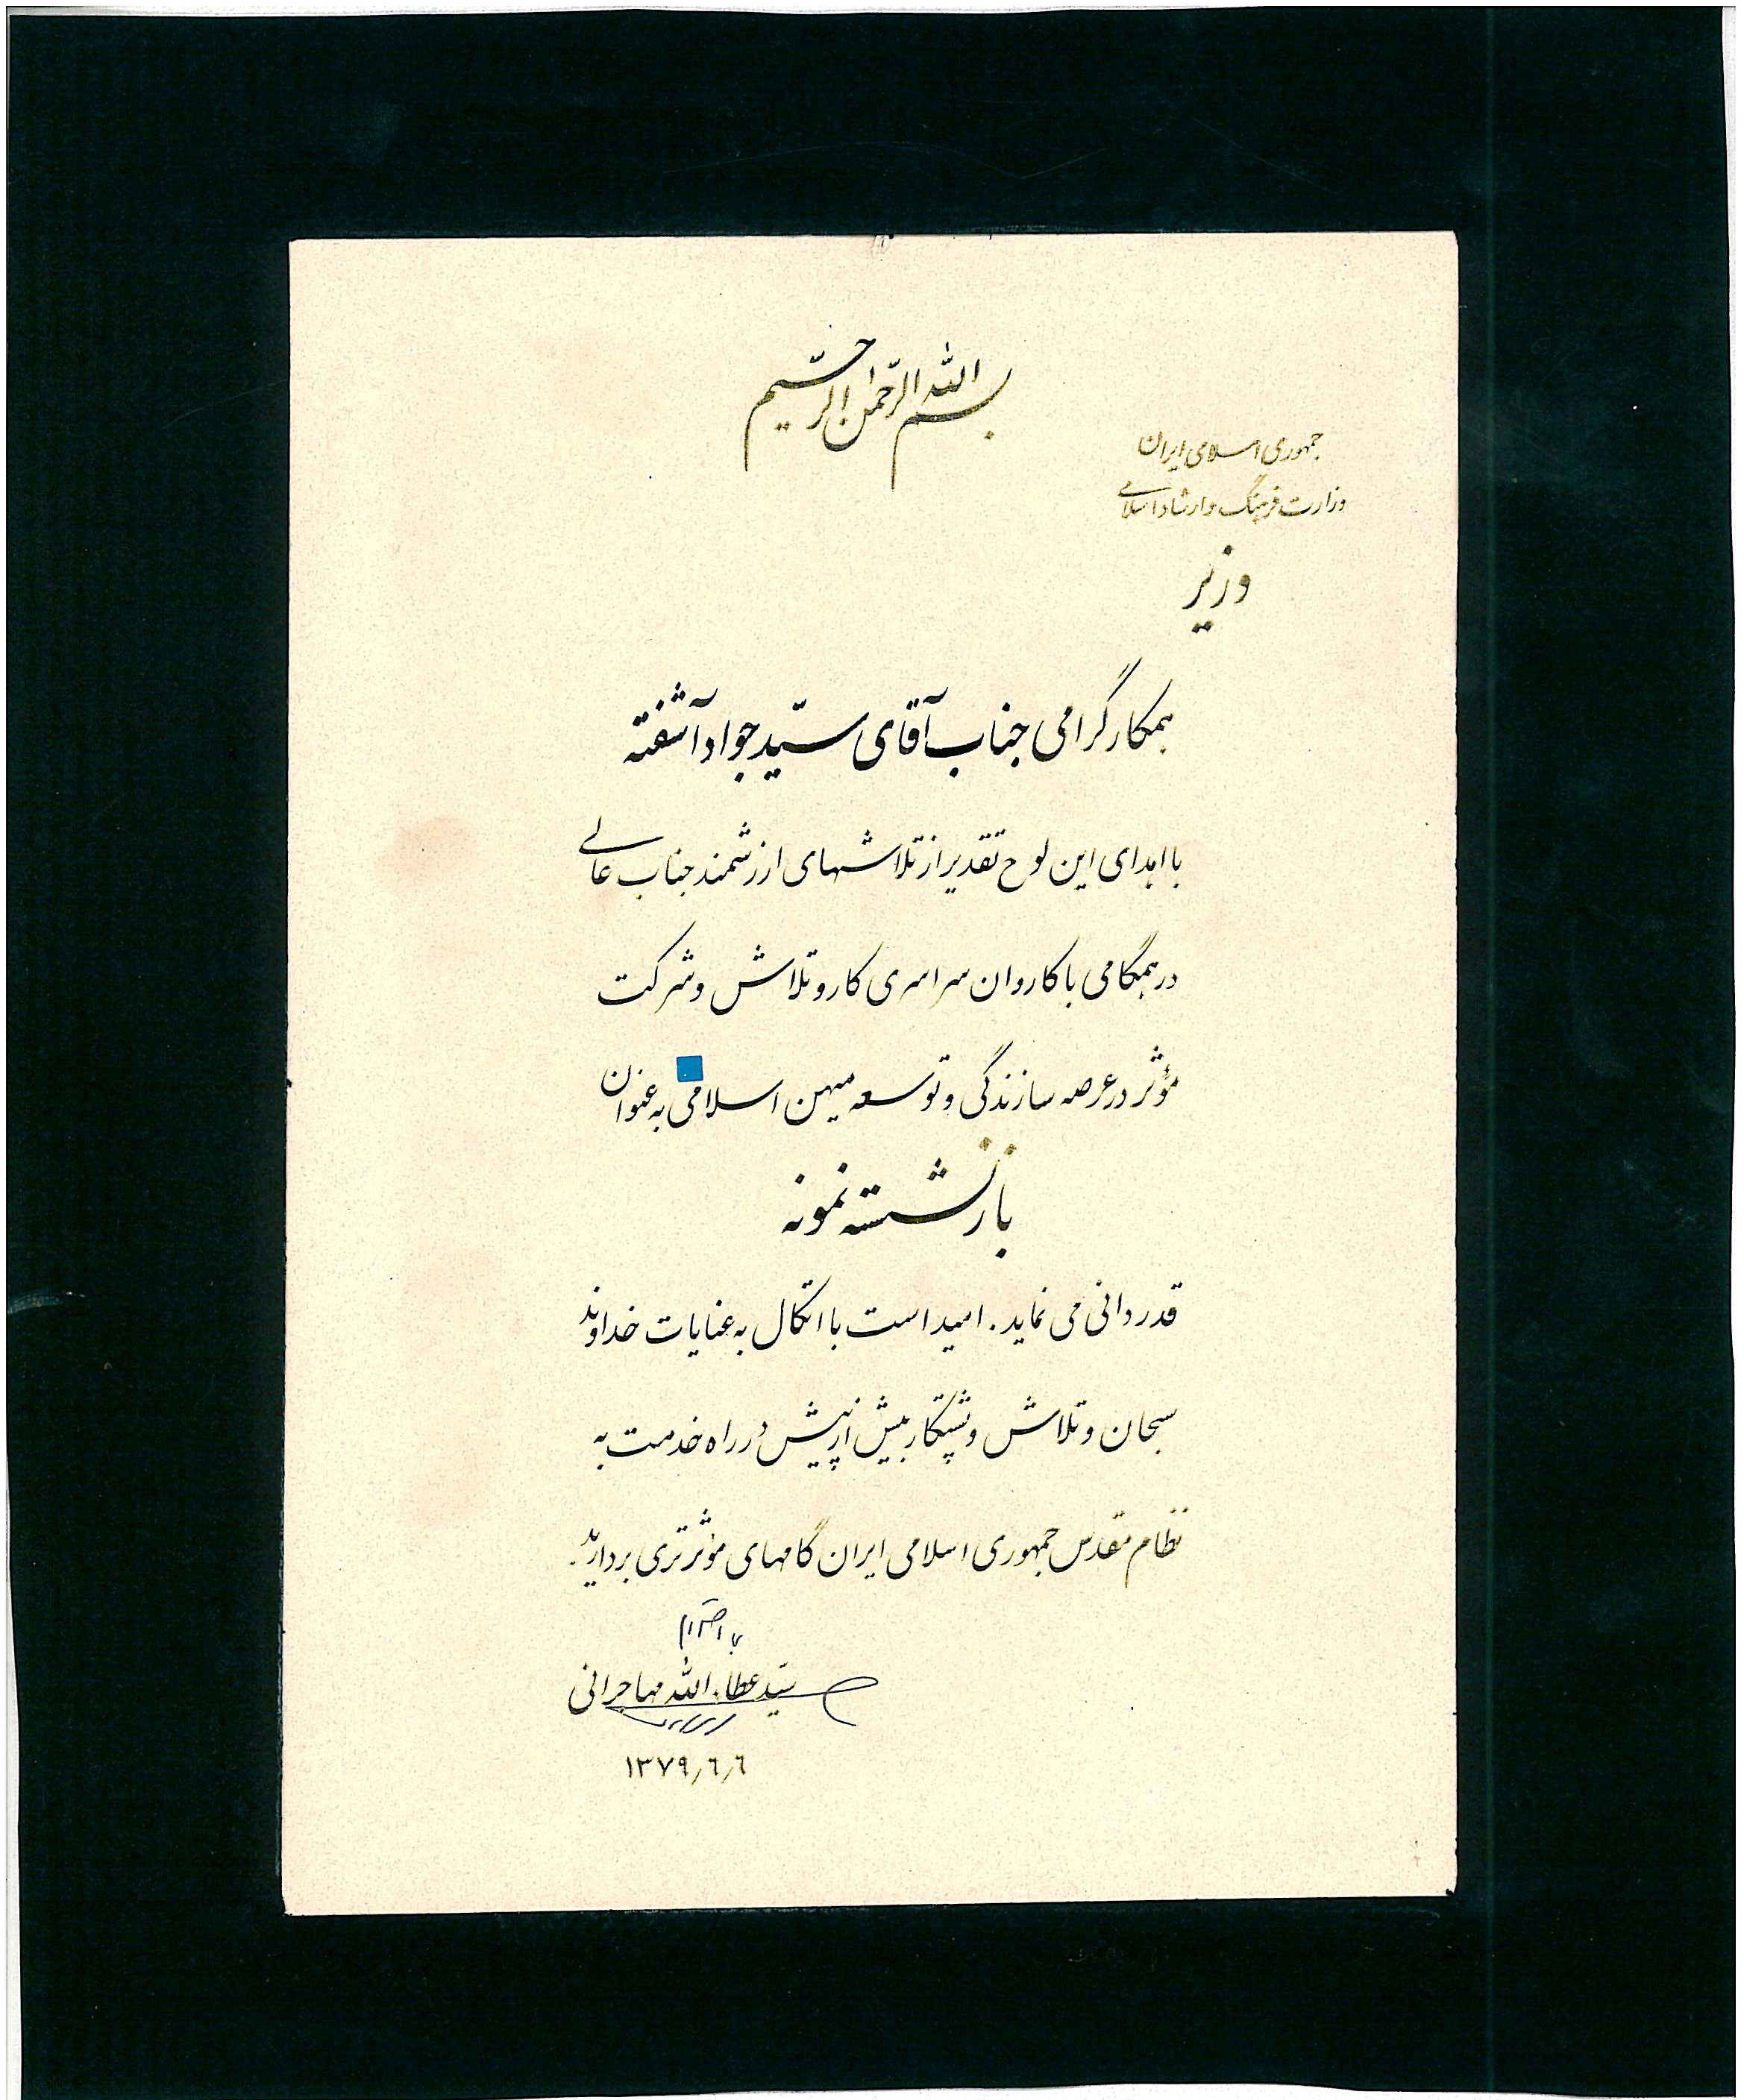 بسم الله الرّحمن الرّحیم
جمهوری اسلامی ایران
وزارت فرهنگ و ارشاد اسلامی
وزیر
همکار گرامی جناب آقای سیّد جواد آشفته
با اهدای این لوح تقدیر از تلاشهای ارزشمند جناب عالی
در همگامی با کاروان سراسری کار و تلاش و شرکت
مؤثر در عرصه سازندگی و توسعه میهن اسلامی به عنوان
بازنشسته نمونه
قدردانی می نماید. امید است با اتکال به عنایات خداوند
سبحان و تلاش و پشتکار بیش از پیش در راه خدمت به
نظام مقدس جمهوری اسلامی ایران گامهای مؤثرتری بردارید.
با احترام
سیّد عطاءالله مهاجرانی
۱۳۷۹/۶/۶